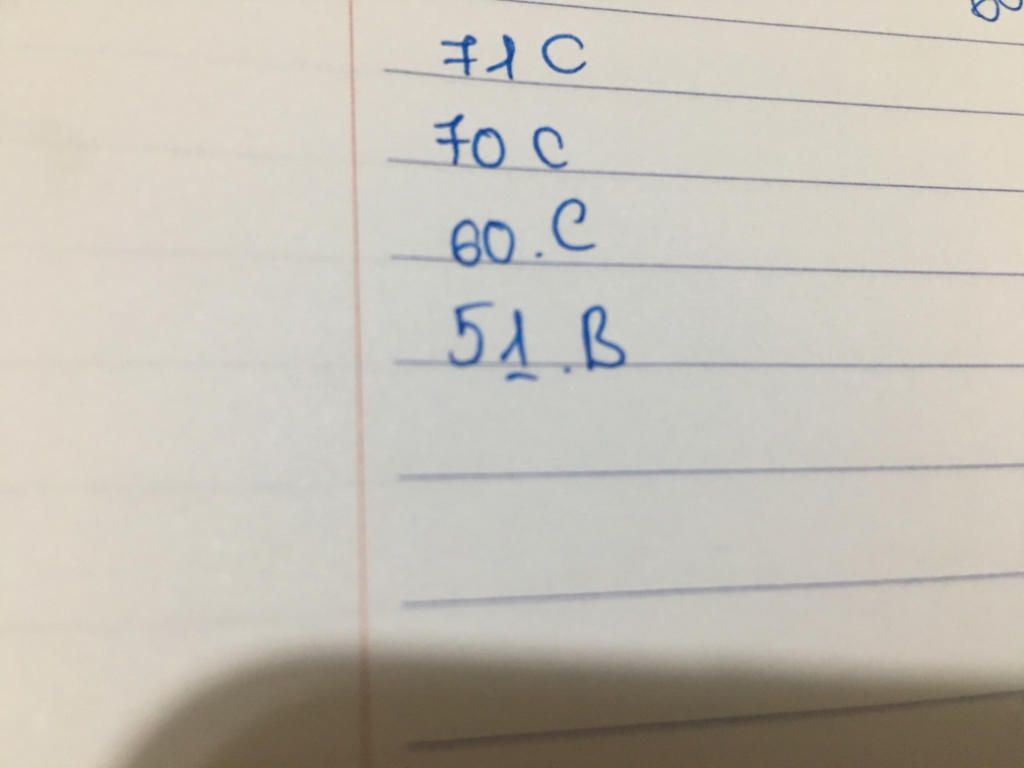 71 C
70 C
60. C
51. B